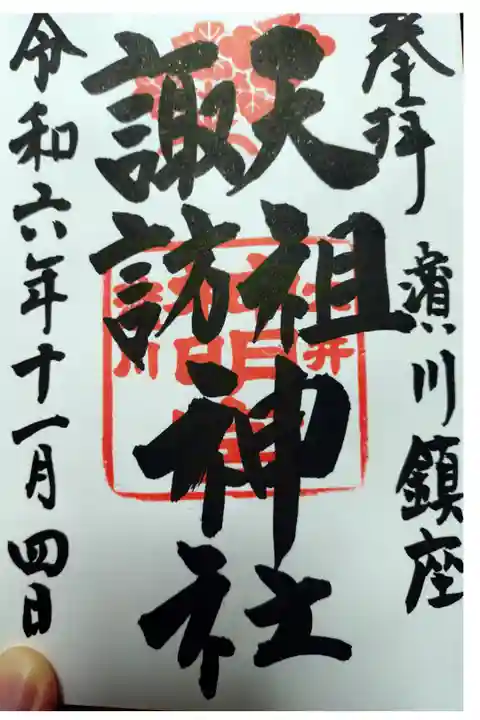 奉拝
濱川鎮座
天祖
諏訪
神社
令和六年十一月四日